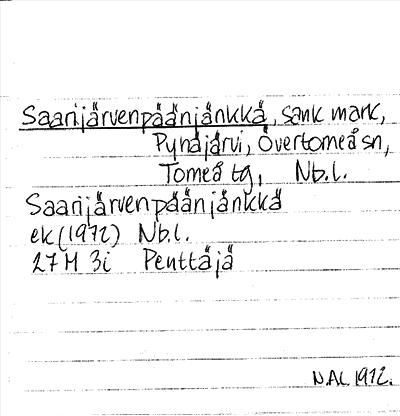 Saarijärvenpäänjänkkä, sank mark,
Pyhäjärvi, Övertorneå sn,
Torneå tg, Nb.l.
Saarijärvenpäänjänkkä
ek (1972) Nb.l.
27M 3i Penttäjä
NAL 1972.